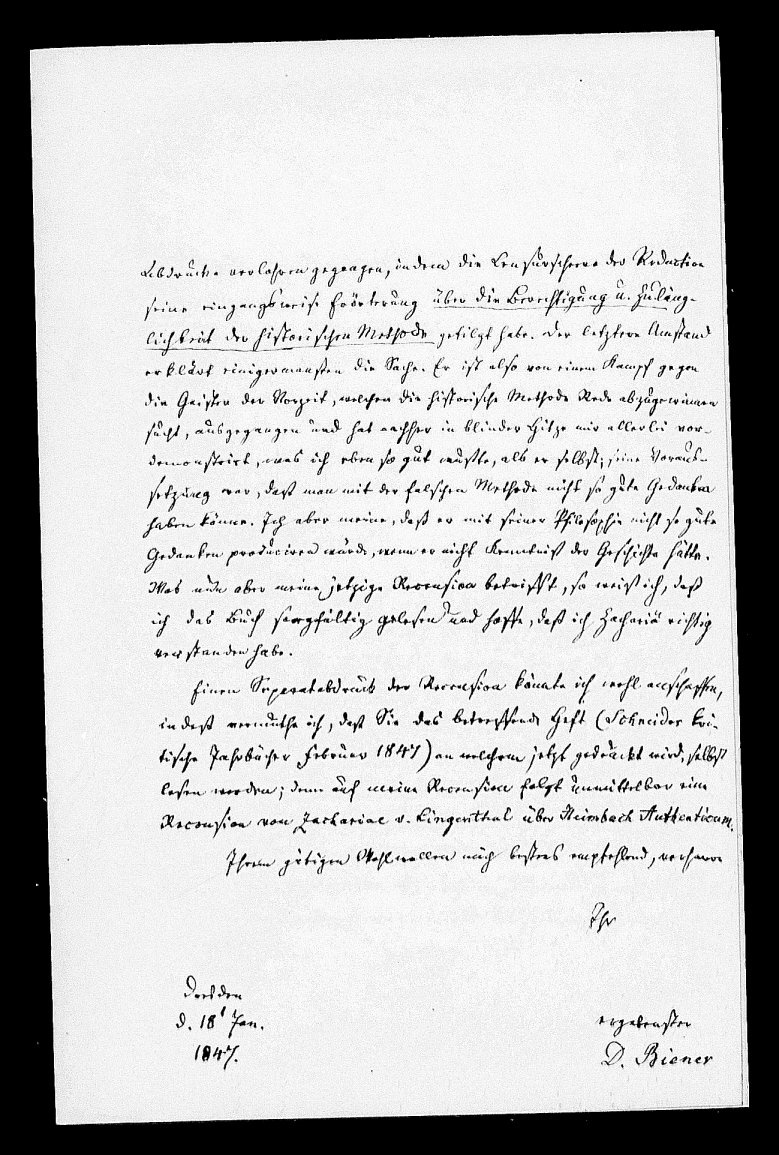 Abdrucke verlohren gegangen, indem die Censurscheere der Redaction
seine eingangsweise Erörterung über die Berechtigung u. Zuläng-
lichkeit der historischen Methode getilgt habe. Der letztere Umstand
erklärt einigermaaßen die Sache. Er ist also von einem Kampf gegen
die Geister der Vorzeit, welchen die historische Methode Rede abzugewinnen
sucht, ausgegangen und hat nachher in blinder Hitze mir allerlei vor-
demonstrirt, was ich eben so gut wußte, als er selbst; seine Voraus-
setzung war, daß man mit der falschen Methode nicht so gute Gedanken
haben könne. Ich aber meine, daß er mit seiner Philosophie nicht so gute
Gedanken produciren würde, wenn er nicht Kenntniß der Geschichte hätte.
Was nun aber meine jetzige Recension betrifft, so weiß ich, daß
ich das Buch sorgfältig gelesen und hoffe, daß ich Zachariä richtig
verstanden habe.
Einen Separatabdruck der Recension könnte ich wohl anschaffen,
indeß vermuthe ich, daß Sie das betreffende Heft (Schneider kri-
tische Jahrbücher Februar 1847) an welchem jetzt gedruckt wird, selbst
lesen werden; denn auf meine Recension folgt unmittelbar eine
Recension von Zachariae v. Lingenthal über Heimbach Authenticum.
Ihrem gütigen Wohlwollen mich bestens empfehlend, verharre
Ihr
Dresden
d. 18 Jan.
1847.
ergebenster
D. Biener